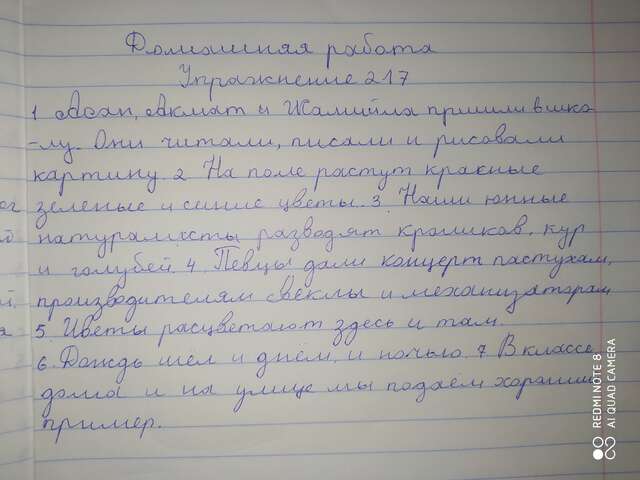 Домашняя работа
Упражнение 217
1 Асан, Акмат и Жамийла пришли в шко
-лу. Они читали, писали и рисовали
картину. 2 На поле растут красные
зеленые и синие цветы. 3. Наши юнные
натуралисты разводят кроликов, кур
и голубей. 4. Певцы дали концерт пастухам,
производителям свёклы и механизаторам
5. Цветы расцветают здесь и там.
6. Дождь шёл и днём, и ночью. 7 В классе,
дома и на улице мы подаём хороший
пример.
REDMI NOTE 8
AI QUAD CAMERA